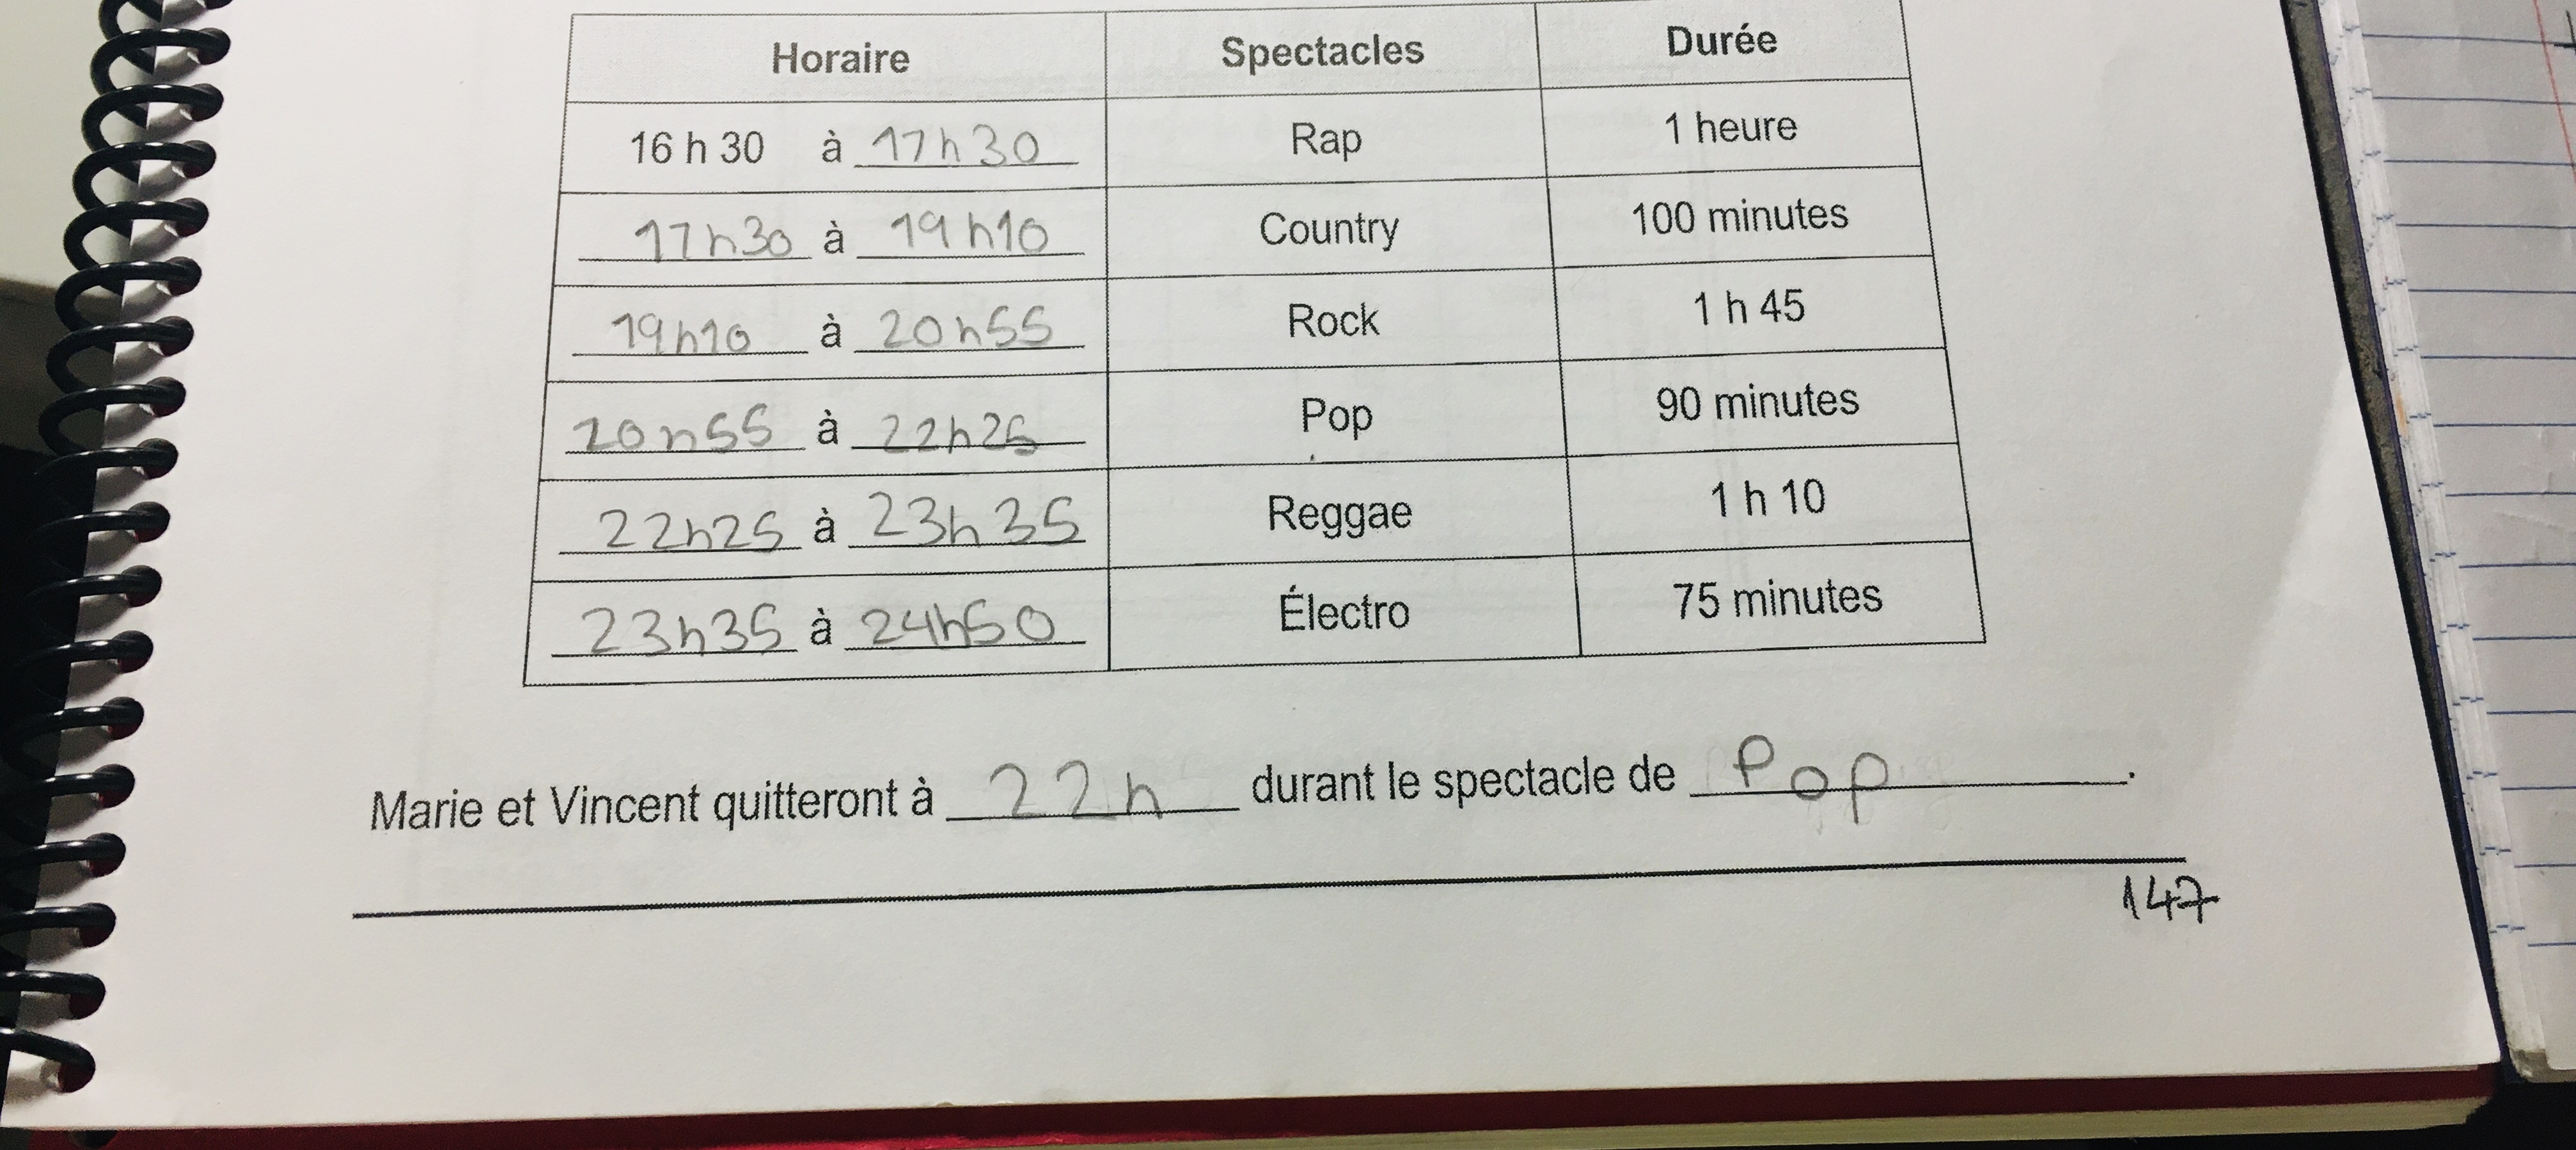 Horaire Spectacles Durée
16 h 30 à 17h30 Rap 1 heure
17h30 à 19h10 Country 100 minutes
19h10 à 20h55 Rock 1 h 45
20h55 à 22h25 Pop 90 minutes
22h25 à 23h35 Reggae 1 h 10
23h35 à 24h50 Électro 75 minutes
Marie et Vincent quitteront à 22h durant le spectacle de Pop.
147